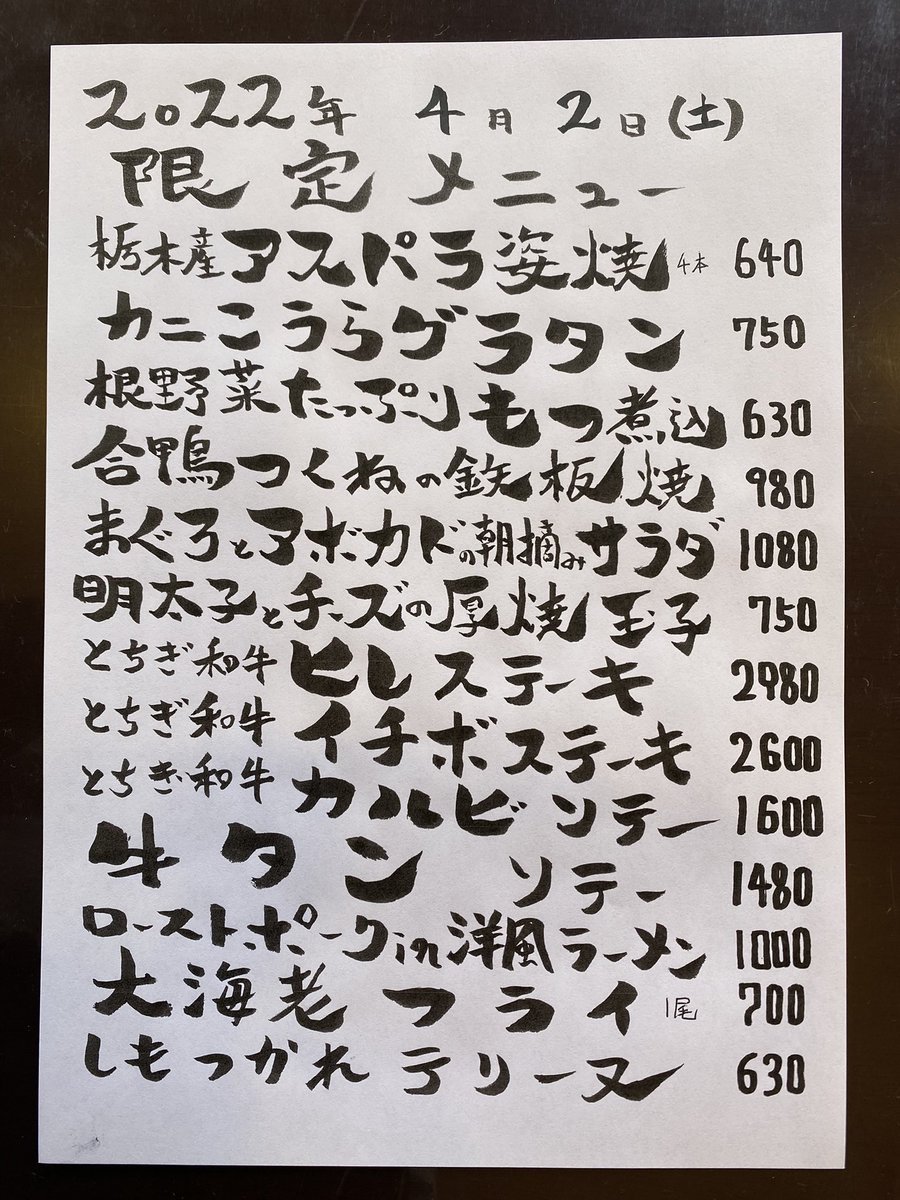 2022年 4月 2日(土)
限定メニュー
栃木産アスパラ姿焼 4本 640
カニこうらグラタン 750
根野菜たっぷりもつ煮込 630
合鴨つくねの鉄板焼 980
まぐろとアボカドの朝摘みサラダ 1080
明太子とチーズの厚焼玉子 750
とちぎ和牛 ヒレステーキ 2980
とちぎ和牛 イチボステーキ 2600
とちぎ和牛 カルビソテー 1600
牛タン ソテー 1480
ローストポークin洋風ラーメン 1000
大海老フライ 1尾 700
しもつかれテリーヌ 630